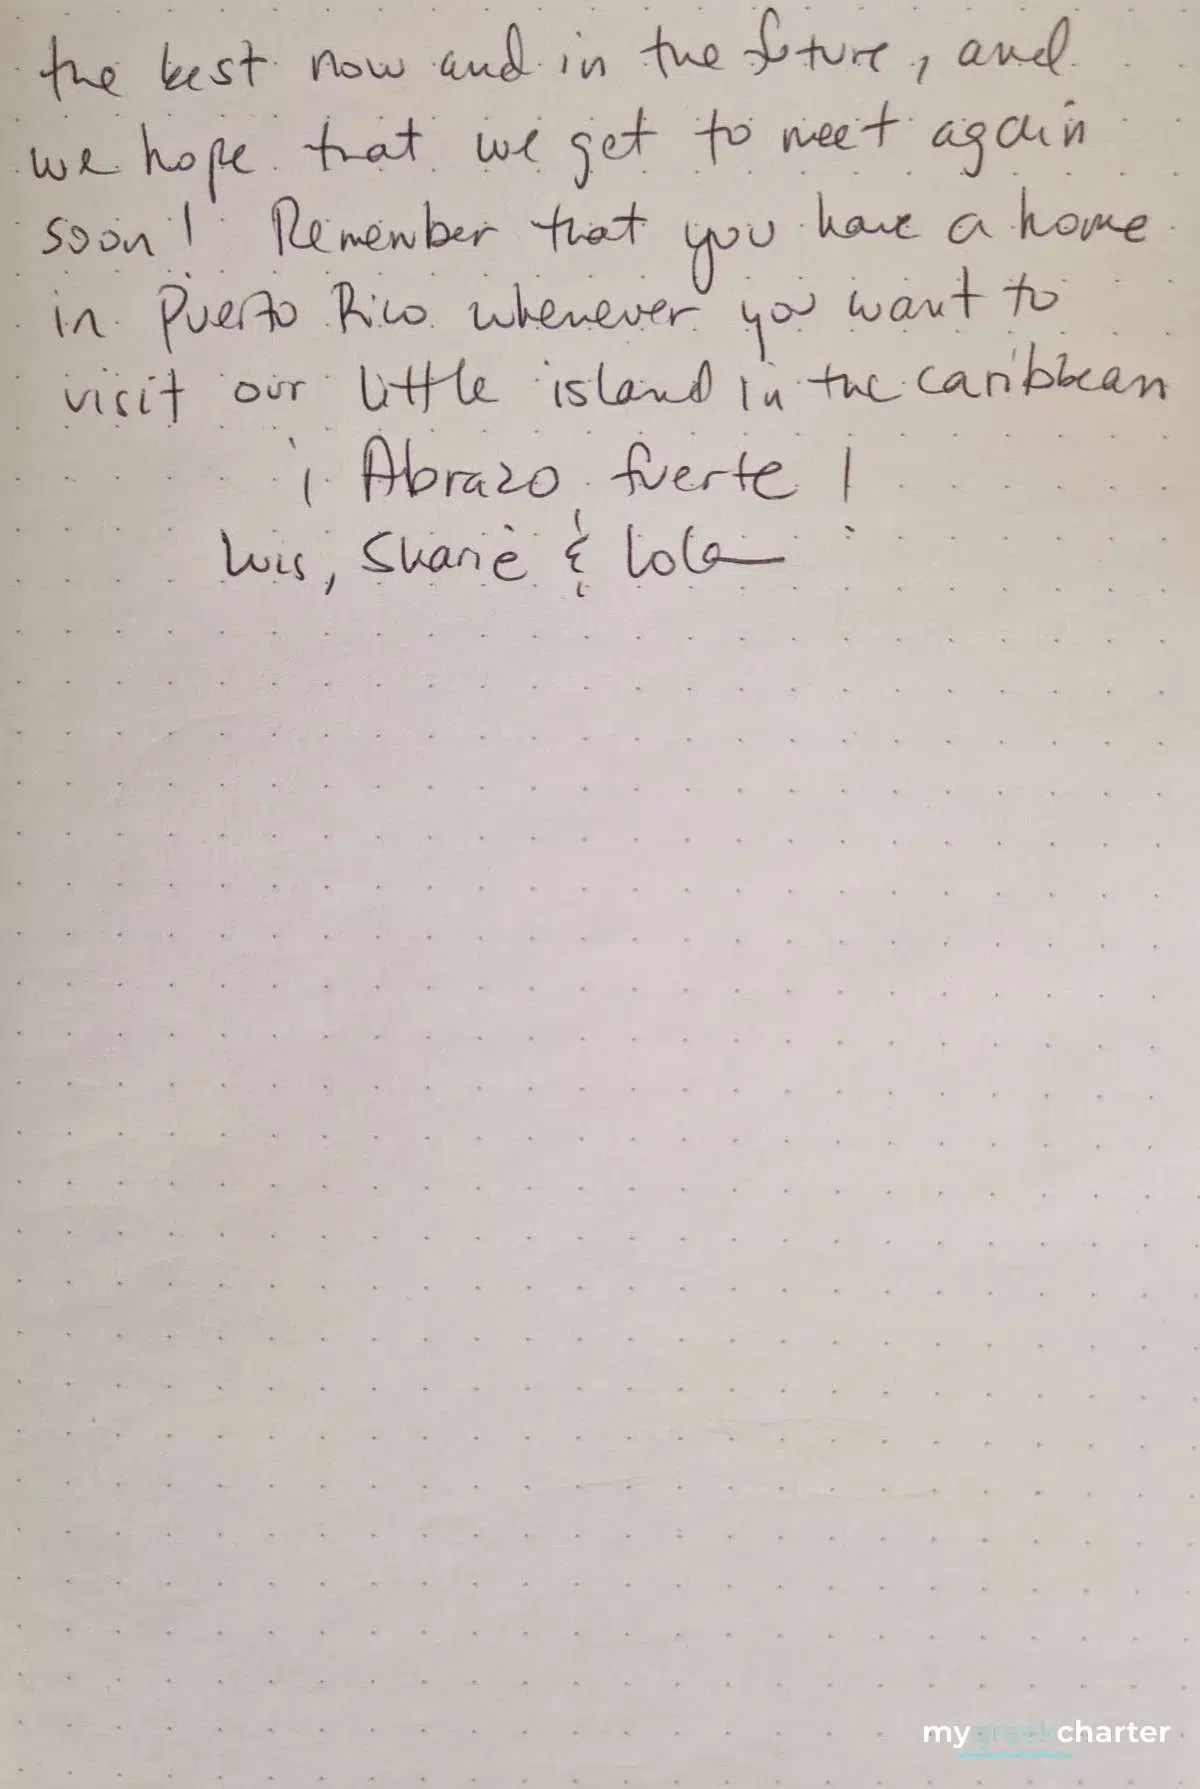 the best now and in the future, and
we hope that we get to meet again
soon! Remember that you have a home
in Puerto Rico whenever you want to
visit our little island in the caribbean
¡Abrazo fuerte!
Luis, Sharie & Lola
mygreekcharter